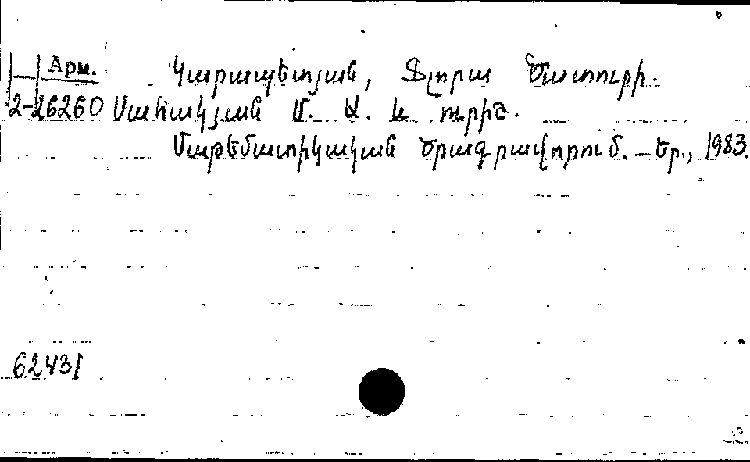 Арм. Կարապետյան, Ֆլորա Ծատուրի.
2-26260 Սահակյան Մ. Ա. և ուրիշ.
Մաթեմատիկական ծրագրավորում. – Եր., 1983.
62431